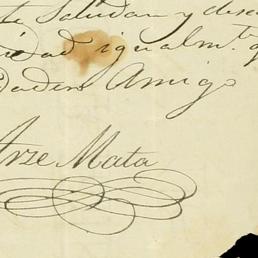 te Saludan y dese
idad igualmt.e q
dadero Amigo
Arze Mata